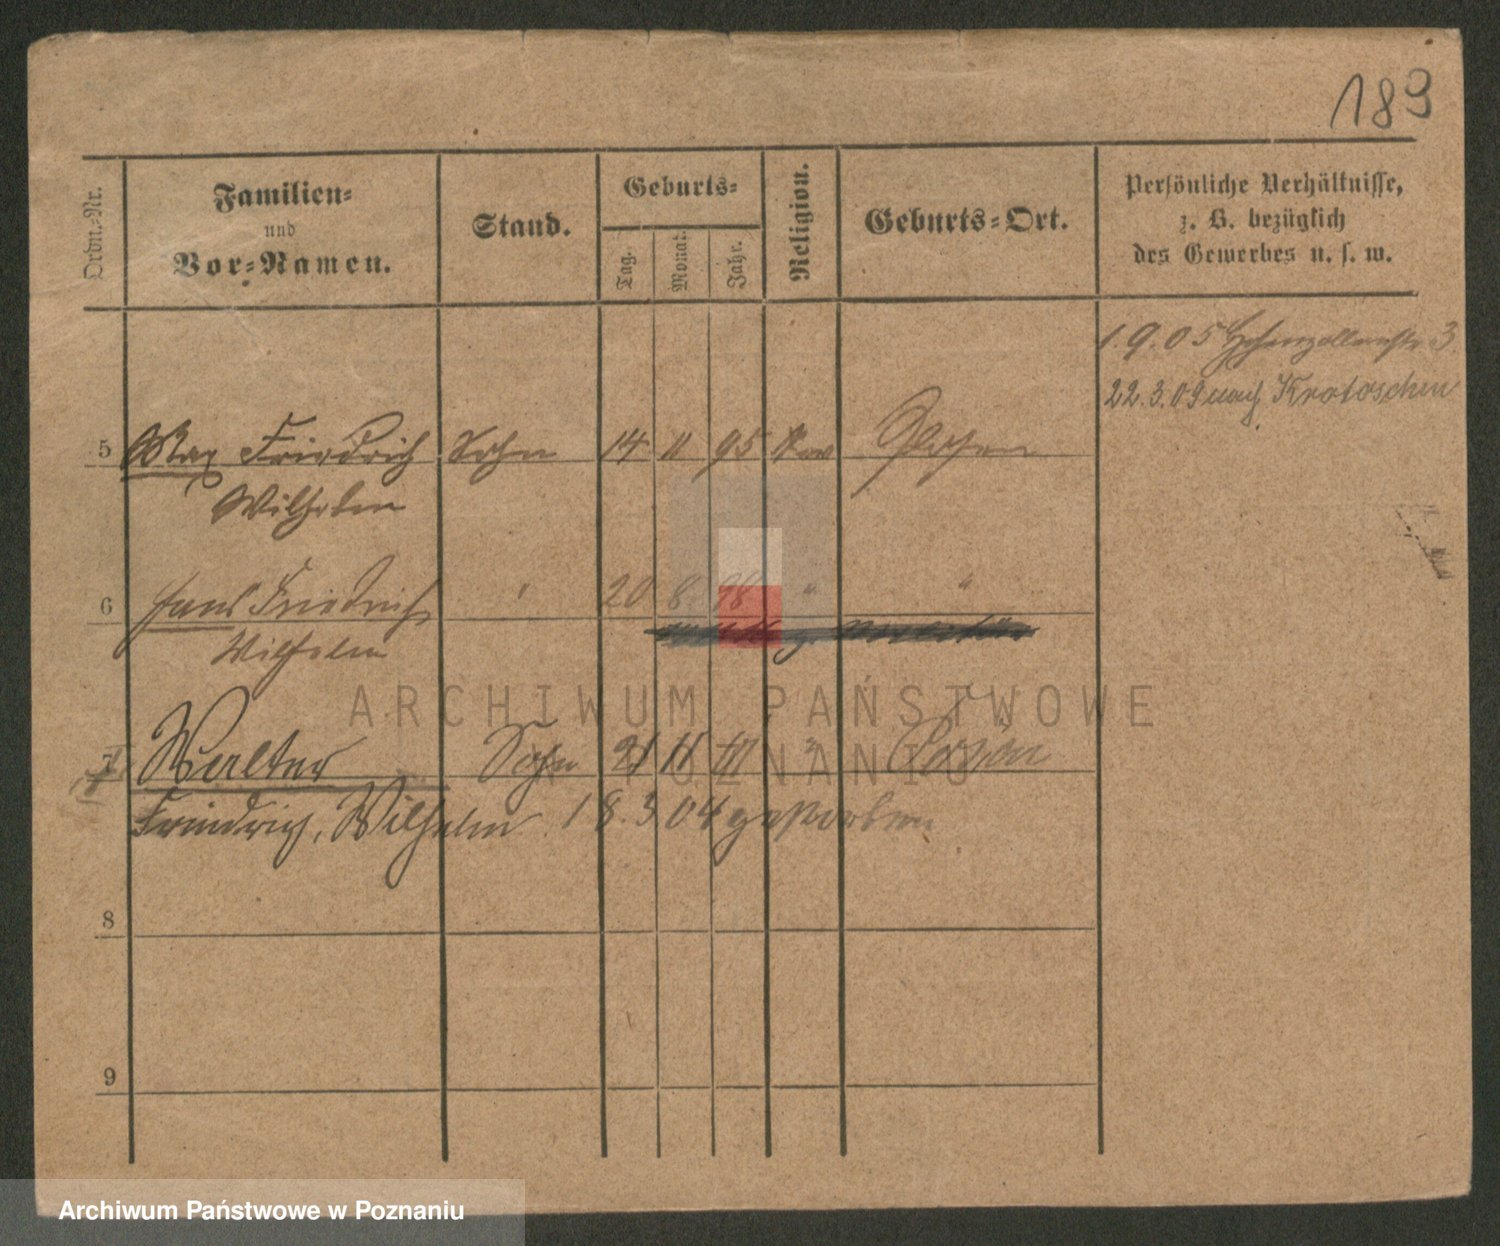 189
Ordn.-Nr.
Familien-
und
Vor-Namen.
Stand.
Geburts-
Tag.
Monat.
Jahr.
Religion.
Geburts-Ort.
Persönliche Verhältnisse,
z. B. bezüglich
des Gewerbes u. s. w.
1.9.05 Hohenzollernstr 3
22.3.09 nach Krotoschin
5 Max Friedrich Sohn 14 11 95 Posen
Wilhelm
6 Hans Friedrich " 20 8. 98 " "
Wilhelm
7 Walter Sohn 21 11 " Posen
Friedrich, Wilhelm 18.3 04 gestorben
8
9
ARCHIWUM PAŃSTWOWE
W POZNANIU
Archiwum Państwowe w Poznaniu